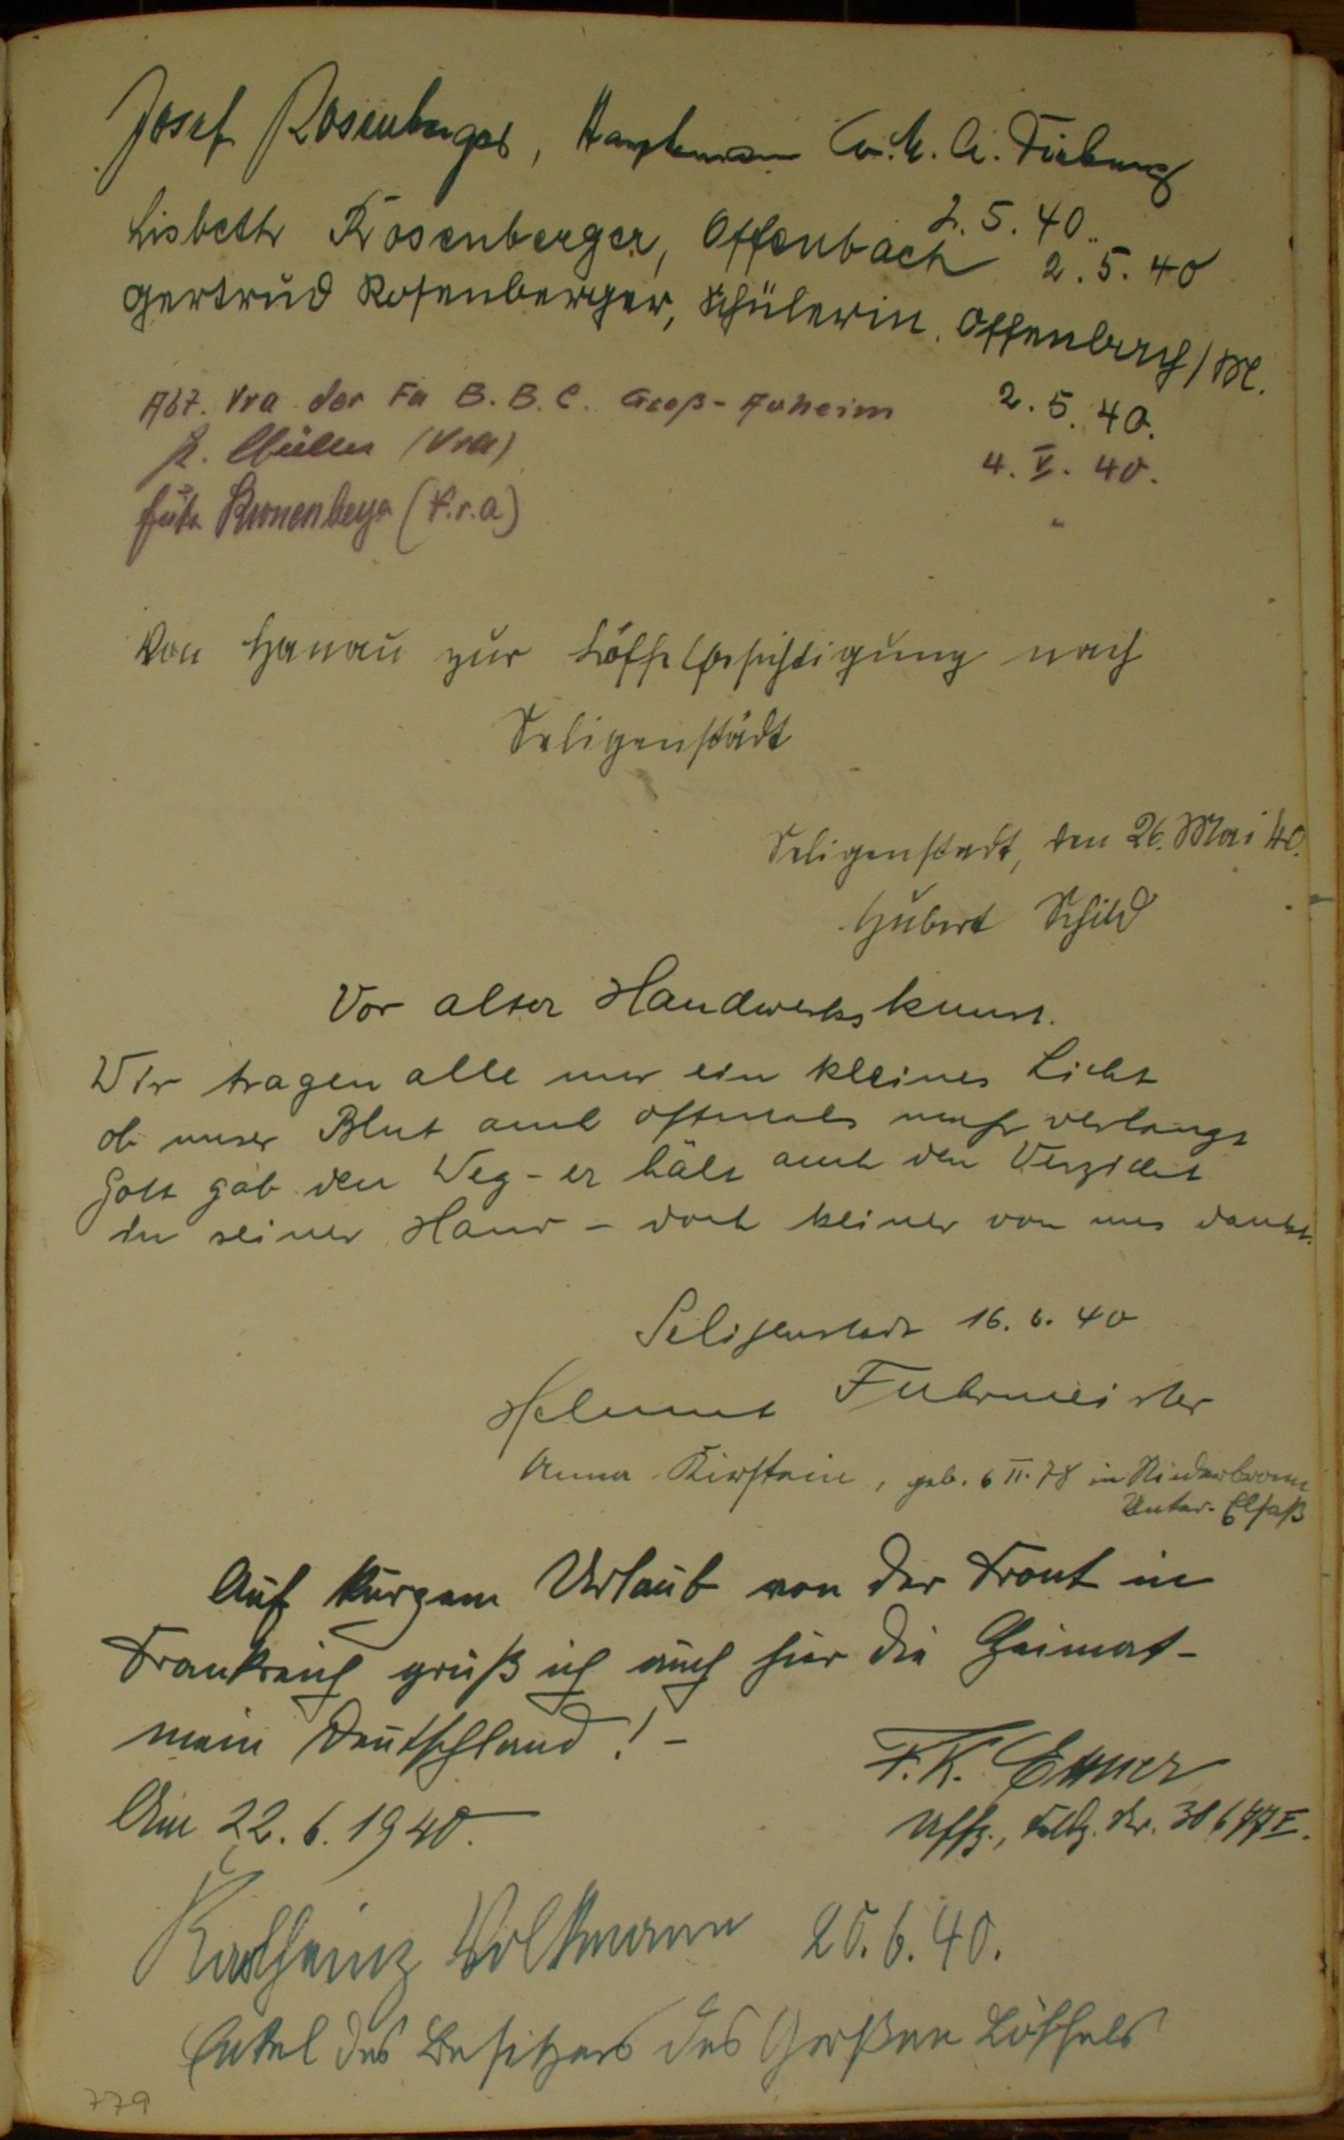 Josef Rosenberger, Hauptmann W. M. A.
2. 5. 40.
Lisbeth Rosenberger, Offenbach 2. 5. 40
Gertrud Rosenberger, Schülerin, Offenbach/M.
2. 5. 40.
Abt. Vra der Fa B. B. C. Groß-Auheim
Müller (Vra) 4. V. 40.
Kronenberger (V.r.a) "
Von Hanau zur Löffelbesichtigung nach
Seligenstädt
Seligenstadt, den 26. Mai 40.
Hubert Schild
Vor alter Handwerkskunst.
Wir tragen alle nur ein kleines Licht
ob unser Blut auch oftmals mehr verlangt
Gott gab den Weg - er hält auch den Verzicht
In seiner Hand - doch keiner von uns dankt.
Seligenstadt 16. 6. 40
Helmut Fuhrmeister
Anna Kirstein, geb. 6 II. 78 in Niederbronn
Unter-Elsaß
Auf kurzem Urlaub von der Front in
Frankreich grüß ich auch hier die Heimat -
mein Deutschland! -
Am 22. 6. 1940.
F. K. Ettner
Uffz., Feldp. Nr. 30677 E.
Karlheinz Volkmann 25. 6. 40.
Enkel des Besitzers des Großen Löffels
779